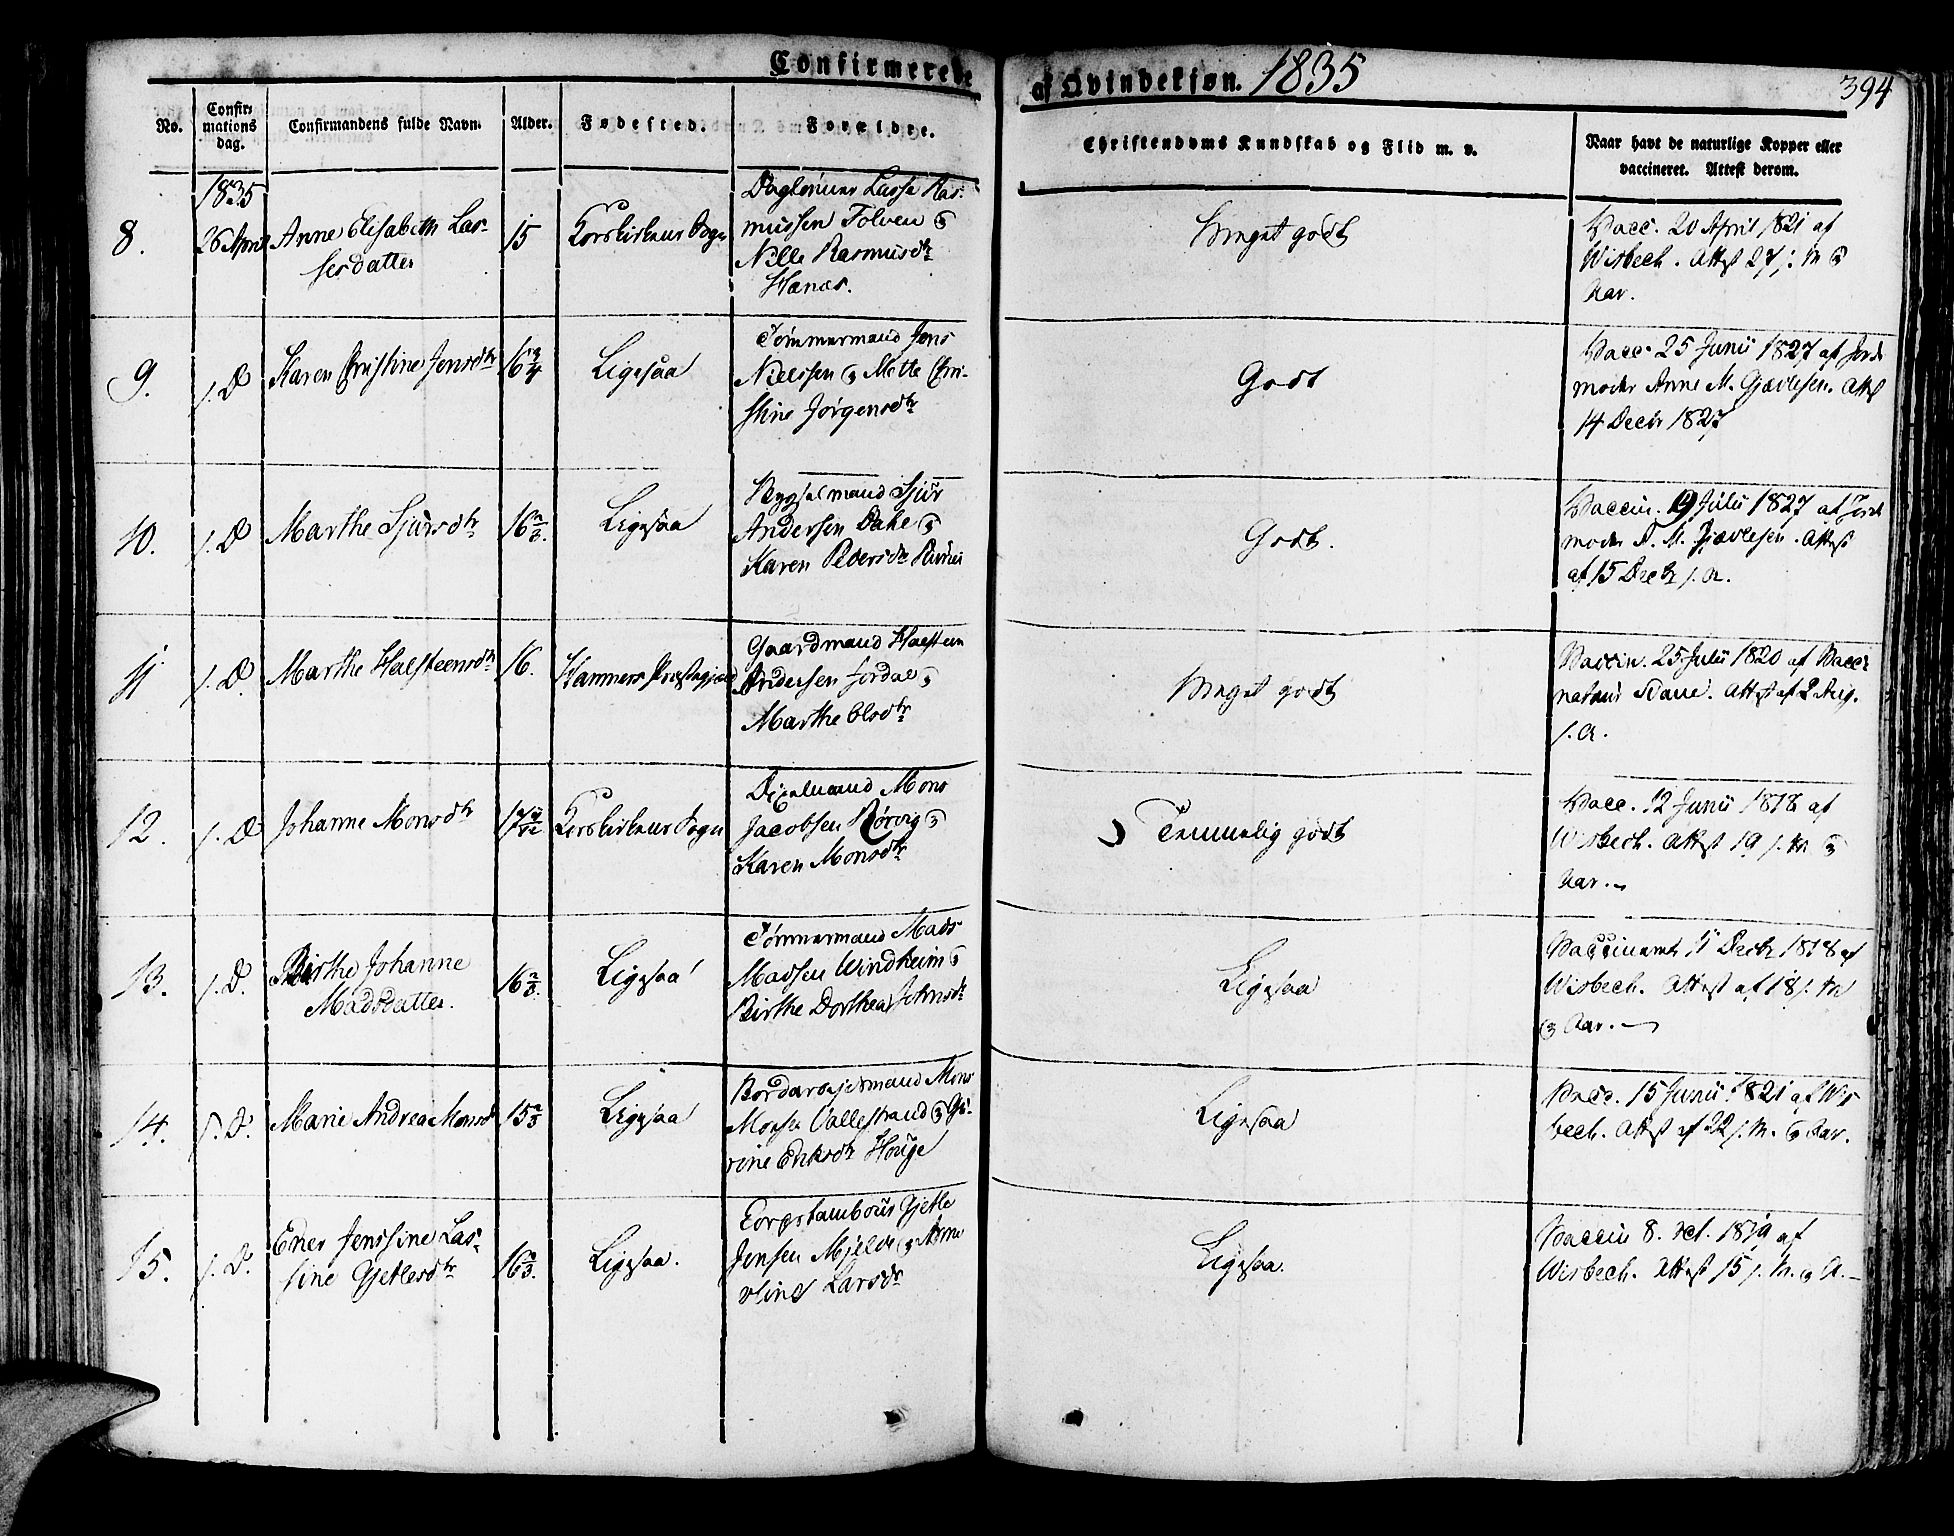 Confirmerede af Qvindekjøn. 1835
394
No. Confirmations dag. Confirmandens fulde Navn. Alder. Fødested. Forældre. Christendoms Kundskab og Flid m. v. Naar havt de naturlige Kopper eller vaccineret. Attest derom.
1835
8. 26 April Anne Elisabeth Las-
serdatter
15
Korskirkens Sogn
Daglönner Lasse Ras-
mussen Tolven &
Nille Rasmusdtr
Hanæs.
Meget godt
Vacc. 20 April 1821 af
Wisbech. Attest 27 s. M &
Aar.
9. s. D Karen Christine Jensdtr
16 3/4
Ligesaa
Tömmermand Jens
Nielssen & Mette Chri-
stine Jörgensdtr
Godt
Vacc. 25 Junii 1827 af Jorde
moder Anne M. Gjævlesen. Attest
14 Decbr 1827
10. s. D Marthe Sjursdtr
16 2/3.
Ligesaa
Sjur
Andersen Dahe &
Karen Pedersdtr
Godt.
Vaccin. 9 Julii 1827 af Jorde
moder A. M. Gjævlesen. Attest
af 15 Decbr s. A.
11. s. D. Marthe Halsteensdtr
16.
Hammers Præstegjæld
Gaardmand Halsteen
Andersen Jordal &
Marthe Olsdtr
Meget godt
Vaccin. 25 Julii 1820 af Vacci
nateur Daue. Attest af 2 Aug.
s. A.
12. s. D Johanne Monsdtr
Korskirkens Sogn
Mons
Jacobsen Rörvig &
Karen Monsdtr
Temmelig godt
Vacc. 12 Junii 1818 af
Wisbech. Attest 19 s. M &
Aar.
13. s. D. Birthe Johanne
Madsdatter.
16 2/3.
Ligesaa
Tömmermand Mads
Madsen Windheim &
Birthe Dorthea Johnsdtr
Ligesaa
Vaccineret 11 Decbr 1818 af
Wisbech. Attest af 18 s. M
& Aar.
14. s. D. Marie Andrea Monsd
15 2/3
Ligesaa
Mons
Monsen Vallestrand &
rine Eriksdtr Houge
Ligesaa
Vacc. 15 Junii 1821 af Wis
bech. Attest af 22 s. M. & Aar.
15. s. D. Jenssine Las-
sine Gjetlesdtr
16 2/3.
Ligesaa.
Corpstambour Gjetle
Jensen Mjelde & Anne
Larsdtr
Ligesaa.
Vaccin 8. Oct. 1819 af
Wisbech. Attest 15 s. M. & A.